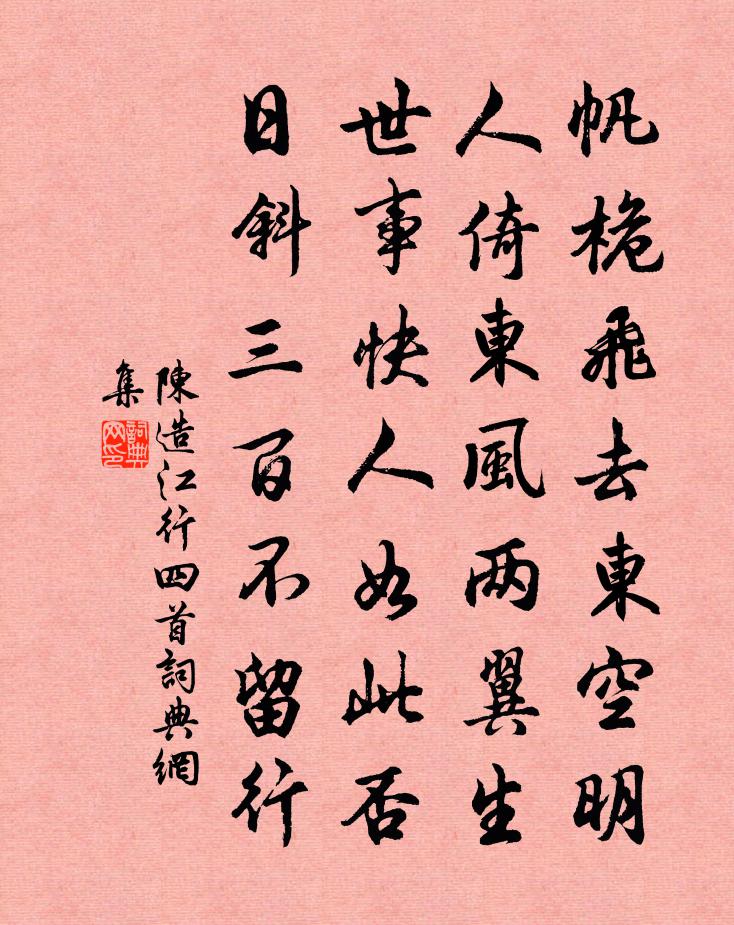 帆桅飛去東空明
人倚東風两翼生
世事快人如此否
日斜三百不留行
陳造江行四首詞典網
集
詞典網印